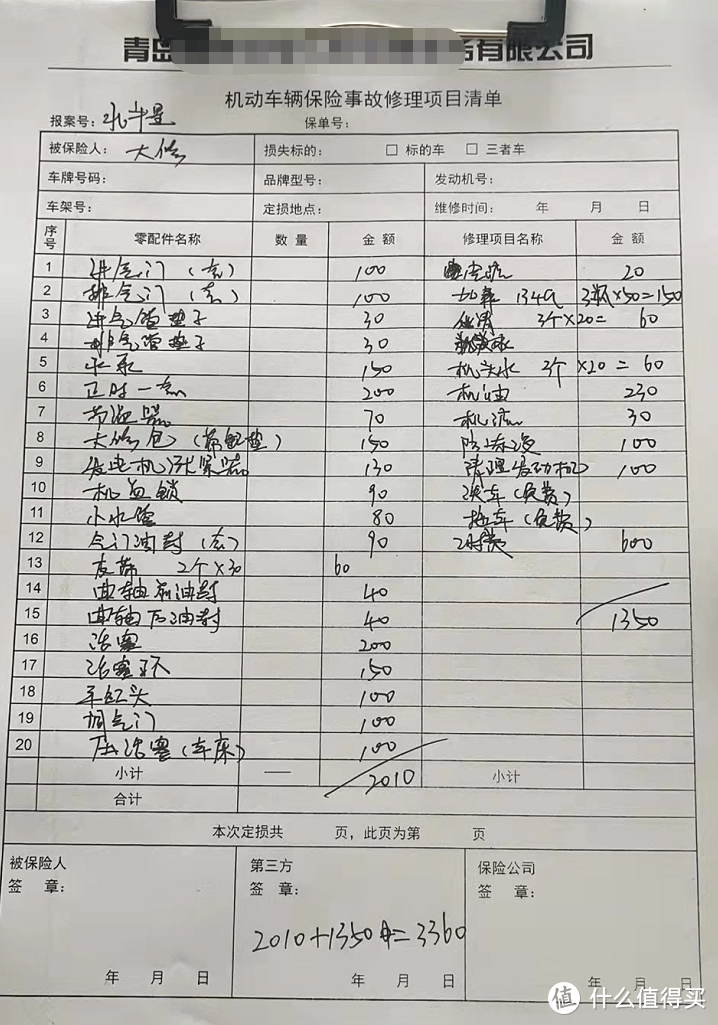 青岛 有限公司
机动车辆保险事故修理项目清单
报案号： 保单号：
被保险人：大修 损失标的： □ 标的车 □ 三者车
车牌号码： 品牌型号： 发动机号：
车架号： 定损地点： 维修时间： 年 月 日
序号 零配件名称 数量 金额 修理项目名称 金额
1 进气门（套） 100 20
2 排气门（套） 100 134a 3瓶×50=150
3 进气管垫子 30 3个×20= 60
4 排气管垫子 30
5 水泵 150 机头水 3个×20= 60
6 正时一套 200 机油 230
7 节温器 70 机滤 30
8 大修包（带缸垫） 150 防冻液 100
9 发电机张紧器 130 清理发动机 100
10 机盖锁 90 洗车（免费）
11 小水管 80 拖车（免费）
12 气门油封（套） 90 工时费 600
13 皮带 2个×30 60
14 曲轴前油封 40
15 曲轴后油封 40 1350
16 活塞 200
17 活塞环 150
18 平缸头 100
19 100
20 压活塞（车床） 100
小计 — 2010 小计
合计
本次定损共 页，此页为第 页
被保险人 第三方 保险公司
签 章： 签 章： 签 章：
2010+1350=3360
年 月 日 年 月 日 年 月 日
值 什么值得买